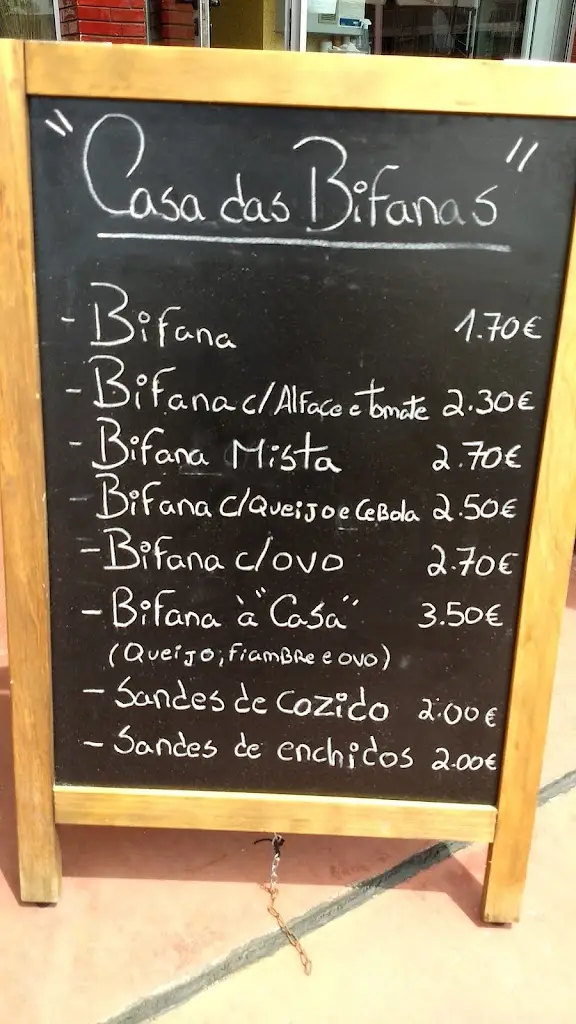 "Casa das Bifanas"
- Bifana 1.70€
- Bifana c/Alface e tomate 2.30€
- Bifana Mista 2.70€
- Bifana c/Queijo e Cebola 2.50€
- Bifana c/ovo 2.70€
- Bifana à "Casa" 3.50€
(Queijo, fiambre e ovo)
- Sandes de cozido 2.00€
- Sandes de enchidos 2.00€